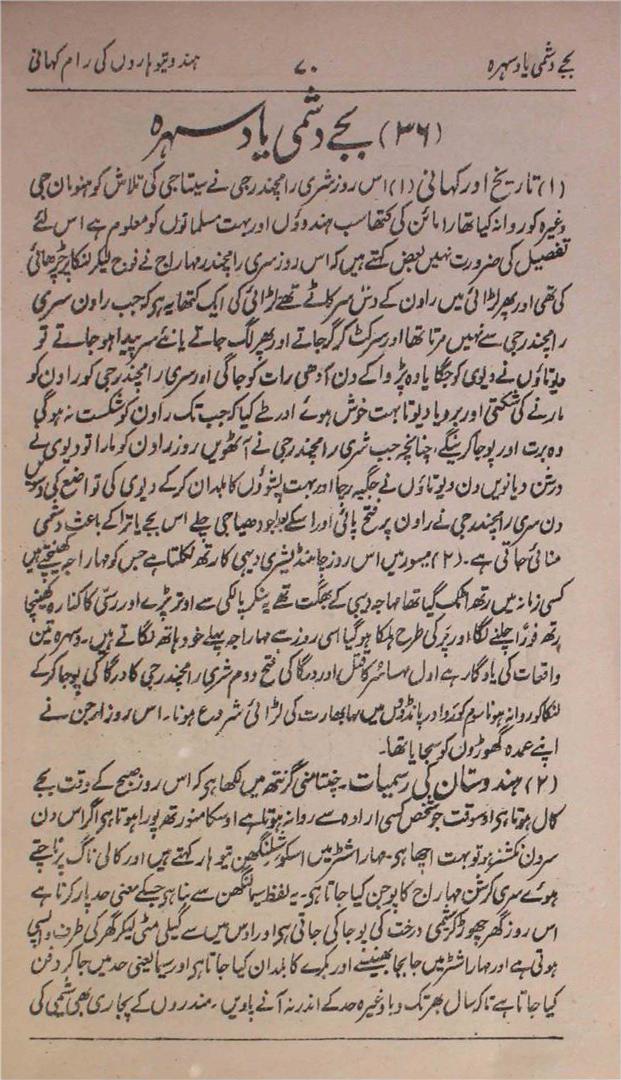 بجے دشمی یا دسہرہ ۷۰ ہندو تیوہاروں کی رام کہانی
(۳۶) بجے دشمی یا دسہرہ
(۱) تاریخ اور کہانی (۱) اس روز شری رامچندر جی نے سیتا جی کی تلاش کو ہنومان جی
وغیرہ کو روانہ کیا تھا رامائن کی کتھا سب ہندوؤں اور بہت مسلمانوں کو معلوم ہے اس لئے
تفصیل کی ضرورت نہیں بعض کہتے ہیں کہ اس روز سری رامچندر مہاراج نے فوج لیکر لنکا پر چڑھائی
کی تھی اور پھر لڑائی میں راون کے دس سر کاٹے تھے لڑائی کی ایک کتھا یہ ہی کہ جب راون سری
رامچندر جی سے نہیں مرتا تھا اور سر کٹ کر گر جاتے اور پھر لگ جاتے یا نئے سر پیدا ہو جاتے تو
دیوتاؤں نے دیوی کو جگایا وہ پڑوا کے دن آدھی رات کو جاگی اور سری رامچندر جی کو راون کو
مارنے کی شکتی اور بر دیا دیوتا بہت خوش ہوئے اور طے کیا کہ جب تک راون کو شکست نہ ہوگی
وہ برت اور پوجا کرینگے۔ چنانچہ جب شری رامچندر جی نے آٹھویں روز راون کو مارا تو دیوی نے
درشن دیا نویں دن دیوتاؤں نے جگیہ رچا اور بہت پشوؤں کا بلدان کر کے دیوی کی تواضع کی دسویں
دن سری رامچندر جی نے راون پر فتح پائی اور اسکے بعد اجودھیا جی چلے اس بجے یاترا کے باعث دشمی
منائی جاتی ہے۔ (۲) میسور میں اس روز چامنڈیشری دیبی کا رتھ نکلتا ہے جس کو مہاراجہ کھینچتے ہیں
کسی زمانہ میں رتھ اٹک گیا تھا مہاراجہ دیبی کے بھگت تھے پالکی سے اوتر پڑے اور رسی کا کنارہ کھینچا
رتھ فوراً چلنے لگا اور پر کی طرح ہلکا ہو گیا اسی روز سے مہاراجہ پہلے خود ہاتھ لگاتے ہیں۔ دسہرہ تین
واقعات کی یادگار ہے اول مہساسر کا قتل اور درگا کی فتح دوم شری رامچندر جی کا درگا کی پوجا کر کے
لنکا کو روانہ ہونا سوم کورو اور پانڈوں میں مہابھارت کی لڑائی شروع ہونا۔ اس روز ارجن نے
اپنے عمدہ گھوڑوں کو سجایا تھا۔
(۲) ہندوستان کی رسمیات۔ چنتامنی گرنتھ میں لکھا ہی کہ اس روز صبح کے وقت بجے
کال ہوتا ہی اوسوقت جو شخص کسی ارادہ سے روانہ ہوتا ہے اوسکا منورتھ پورا ہوتا ہی اگر اس دن
سرون نکشتر ہو تو بہت اچھا ہی۔ مہاراشٹر میں اسکو سیلنگھن تیوہار کہتے ہیں اور کالی ناگ پر ناچتے
ہوئے سری کرشن مہاراج کا پوجن کیا جاتا ہی۔ یہ لفظ سیما لنگھن سے بنا ہی جسکے معنی حد پار کرنا ہے
اس روز گھر چھوڑ کر شمی درخت کی پوجا کی جاتی ہی اور اوس میں سے گیلی مٹی لیکر گھر کی طرف واپسی
ہوتی ہے اور مہاراشٹر میں جابجا بھینسے اور بکرے کا بلدان کیا جاتا ہی اور سیما یعنی حد میں جا کر دفن
کیا جاتا ہے تاکہ سال بھر تک وبا وغیرہ حد کے اندر نہ آنے پاویں۔ مندروں کے پجاری بھی شیمی کی